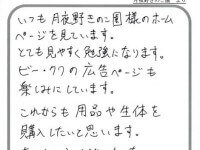 月夜野きのこ園 より
いつも月夜野きのこ園様のホーム
ページを見ています。
とても見やすく勉強になります。
ビー・クワの広告ページも
楽しみにしています。
これからも用品や生体を
購入したいと思います。